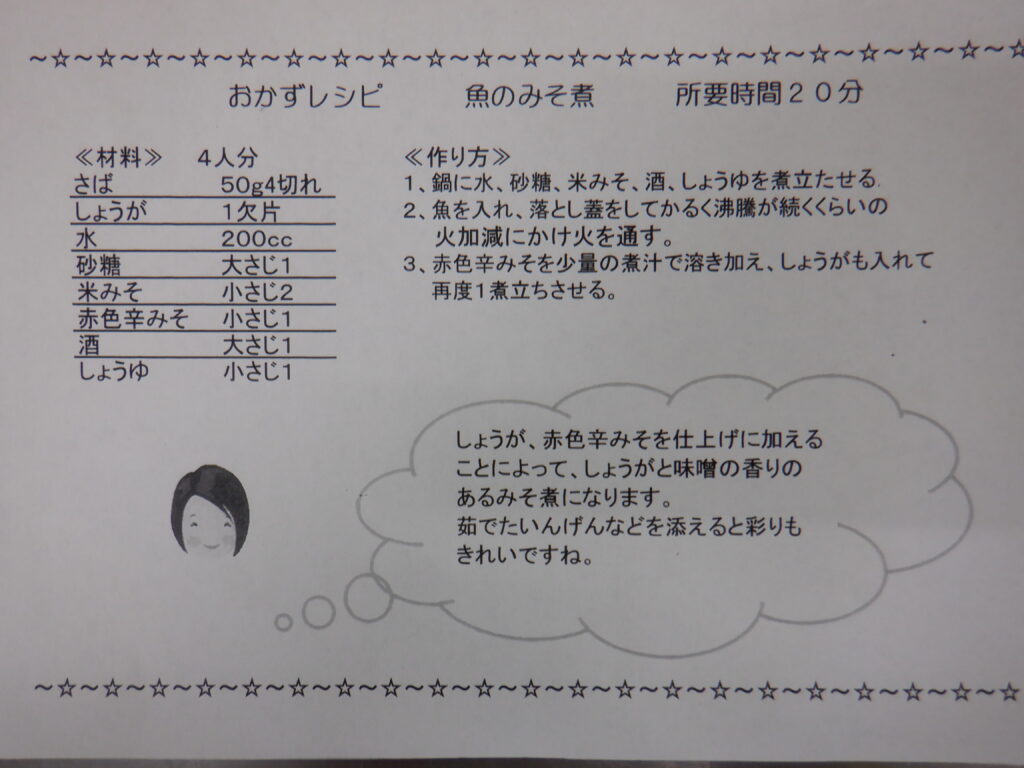 ~☆~☆~☆~☆~☆~☆~☆~☆~☆~☆~☆~☆~☆~☆~☆~☆~☆~☆~☆~☆~☆
おかずレシピ　魚のみそ煮　所要時間２０分
≪材料≫　４人分
さば　50g4切れ
しょうが　1欠片
水　200cc
砂糖　大さじ1
米みそ　小さじ2
赤色辛みそ　小さじ1
酒　大さじ1
しょうゆ　小さじ1
≪作り方≫
1、鍋に水、砂糖、米みそ、酒、しょうゆを煮立たせる.
2、魚を入れ、落とし蓋をしてかるく沸騰が続くくらいの
火加減にかけ火を通す。
3、赤色辛みそを少量の煮汁で溶き加え、しょうがも入れて
再度1煮立ちさせる。
しょうが、赤色辛みそを仕上げに加える
ことによって、しょうがと味噌の香りの
あるみそ煮になります。
茹でたいんげんなどを添えると彩りも
きれいですね。
~☆~☆~☆~☆~☆~☆~☆~☆~☆~☆~☆~☆~☆~☆~☆~☆~☆~☆~☆~☆~☆